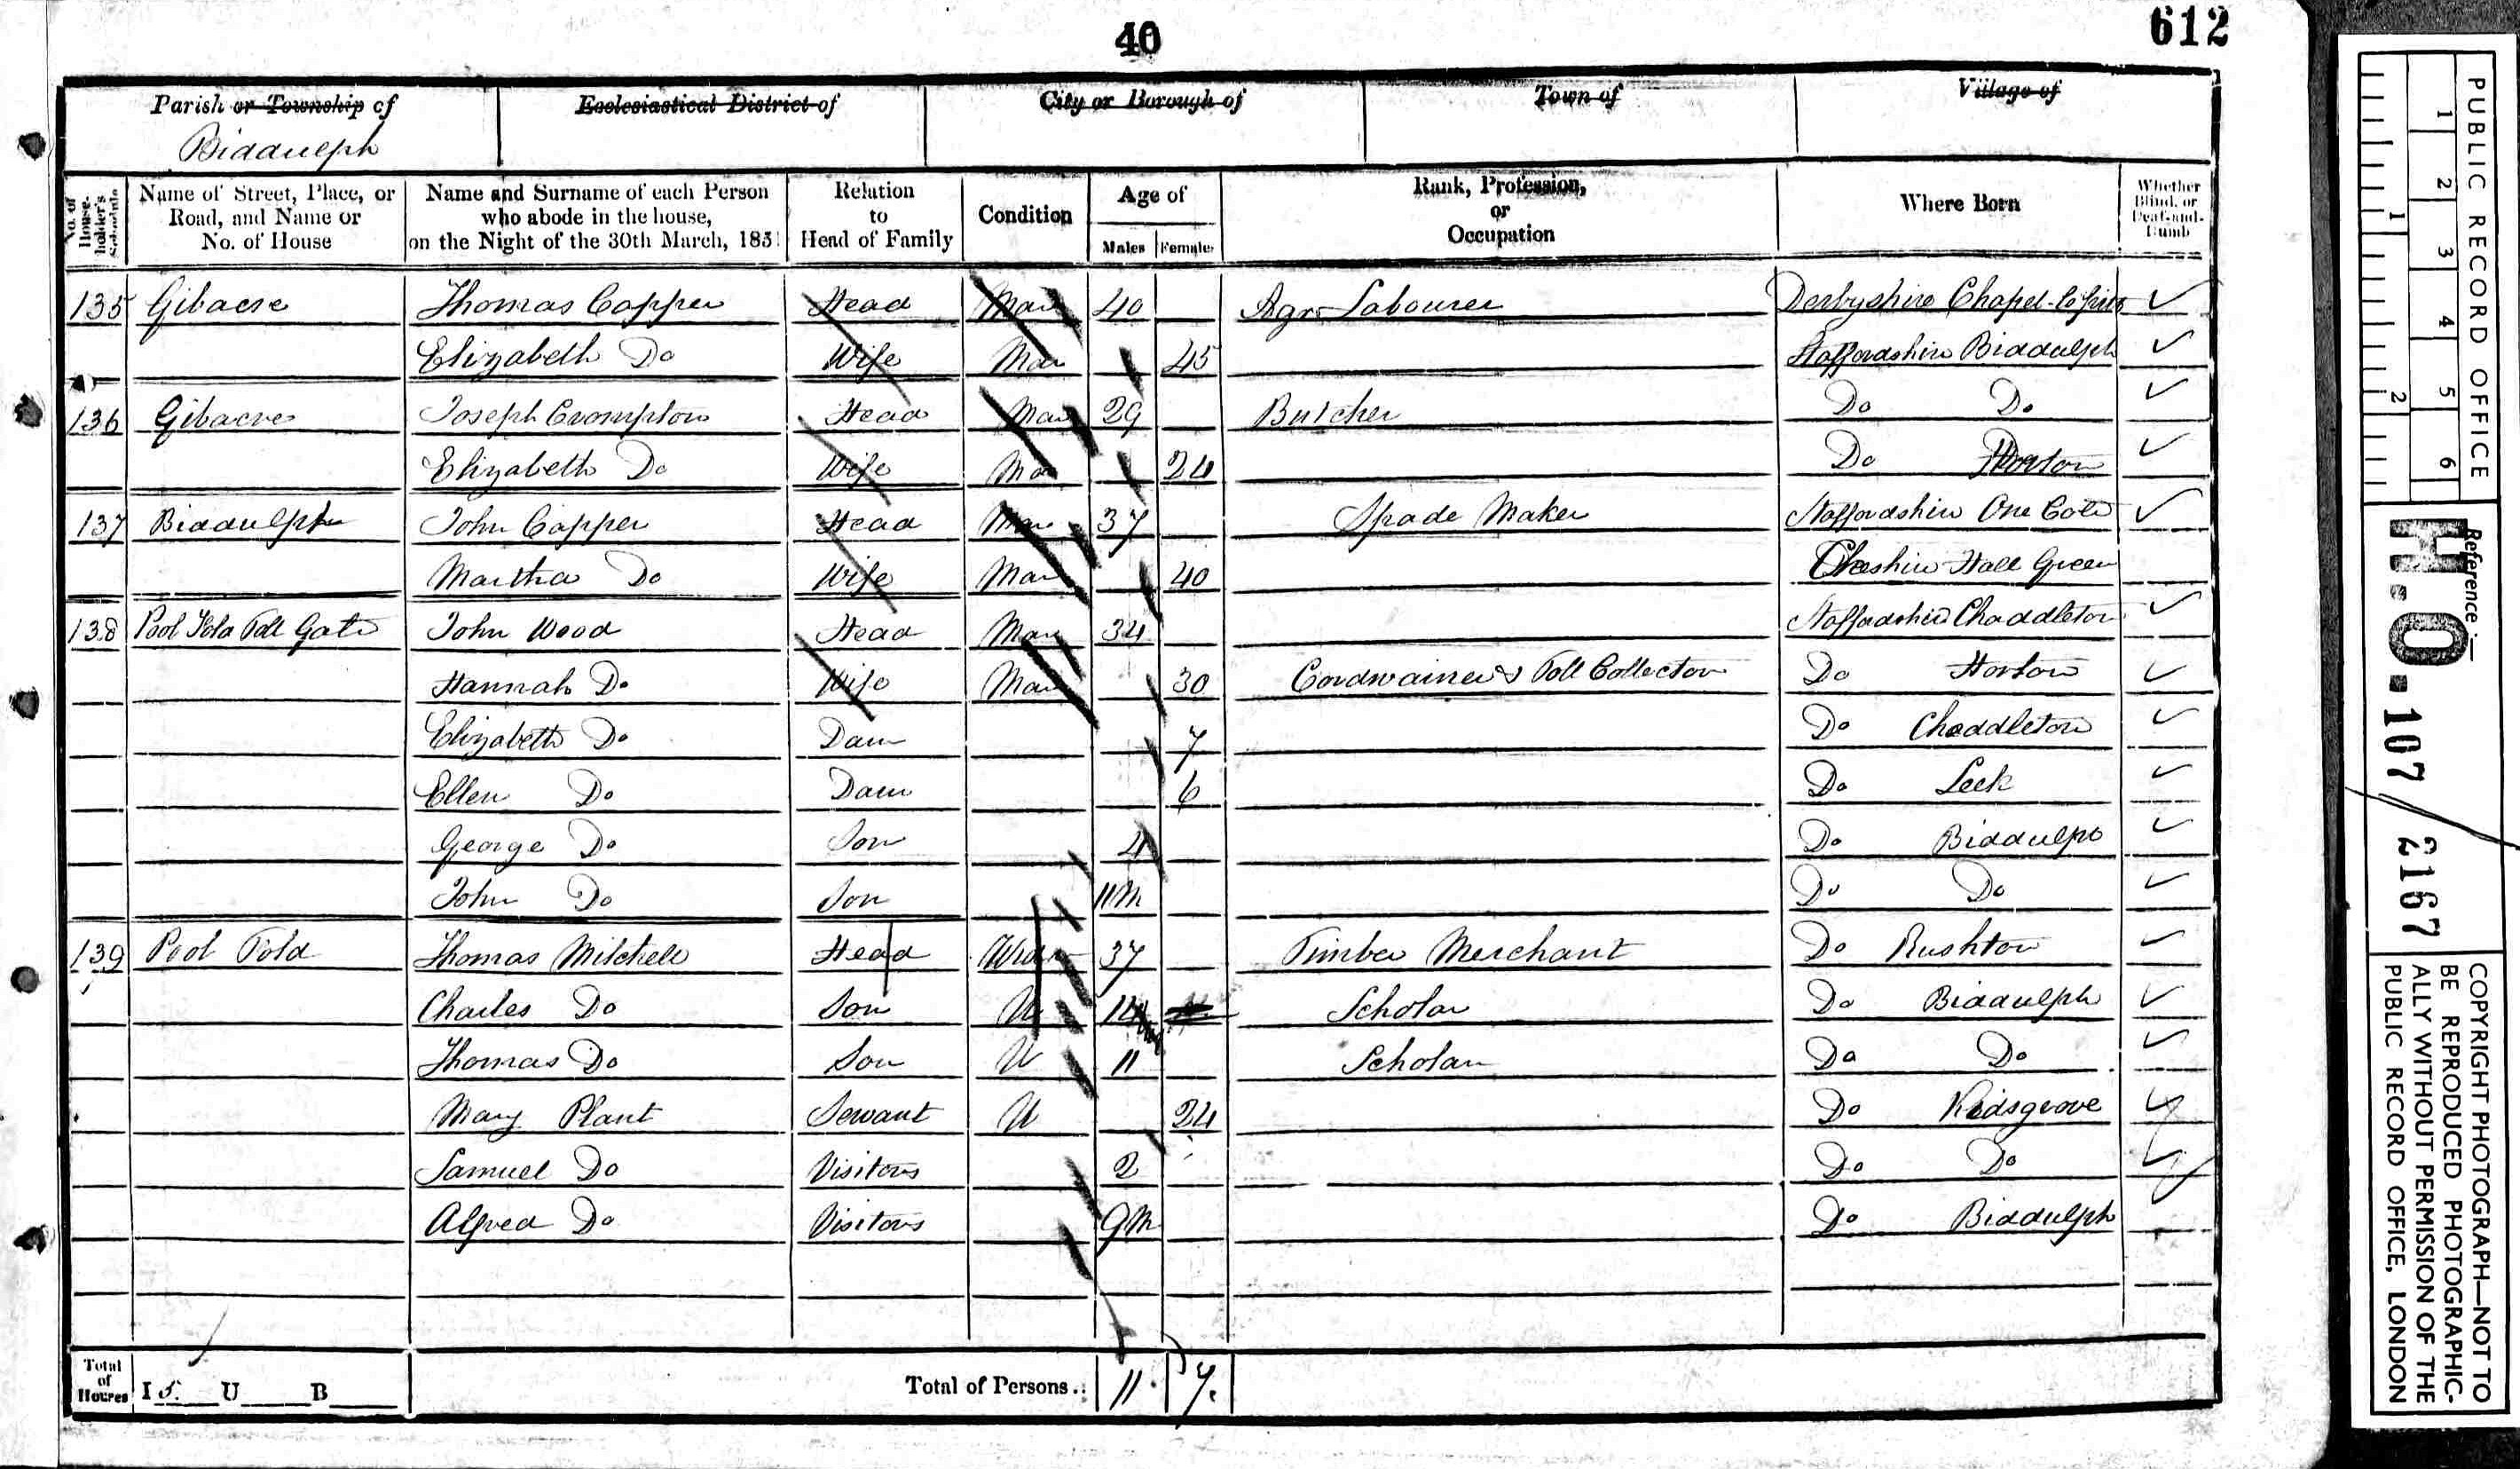 40
612
Parish or Township of
Ecclesiastical District of
City or Borough of
Town of
Village of
Biddulph
No. of House-holder's Schedule
Name of Street, Place, or Road, and Name or No. of House
Name and Surname of each Person who abode in the house, on the Night of the 30th March, 1851
Relation to Head of Family
Condition
Age of
Males
Females
Rank, Profession, or Occupation
Where Born
Whether Blind, or Deaf-and-Dumb
135 Gibacre Thomas Copper Head Mar 40 Agr Labourer Derbyshire Chapel-le-Frith
Elizabeth Do Wife Mar 45 Staffordshire Biddulph
136 Gibacre Joseph Crompton Head Mar 29 Butcher Do Do
Elizabeth Do Wife Mar 24 Do Horton
137 Biddulph John Copper Head Mar 37 Spade Maker Staffordshire One Cote
Martha Do Wife Mar 40 Cheshire Hall Green
138 Pool Fold Toll Gate John Wood Head Mar 34 Staffordshire Cheddleton
Hannah Do Wife Mar 30 Cordwainer & Toll Collector Do Horton
Elizabeth Do Daur 7 Do Cheddleton
Ellen Do Daur 6 Do Leek
George Do Son 4 Do Biddulph
John Do Son 11M Do Do
139 Pool Fold Thomas Mitchell Head Wdr 37 Timber Merchant Do Rushton
Charles Do Son U 14 Scholar Do Biddulph
Thomas Do Son U 11 Scholar Do Do
Mary Plant Servant U 24 Do Kidsgrove
Samuel Do Visitors 2 Do Do
Alfred Do Visitors 9M Do Biddulph
Total of Houses I 5. U B Total of Persons.. 11. 7.
PUBLIC RECORD OFFICE
1 2 3 4 5 6
1 2
Reference :—
H.O. 107 / 2167
COPYRIGHT PHOTOGRAPH—NOT TO
BE REPRODUCED PHOTOGRAPHIC-
ALLY WITHOUT PERMISSION OF THE
PUBLIC RECORD OFFICE, LONDON